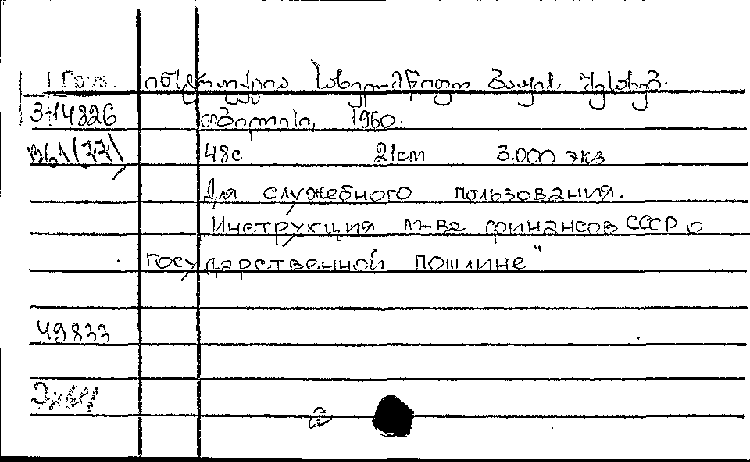 ინსტრუქცია სახელმწიფო ბაჟის შესახებ
თბილისი, 1960.
48с 21cm 3.000 экз
Для служебного пользования.
Инструкция м-ва финансов СССР „о
государственной пошлине"
49833